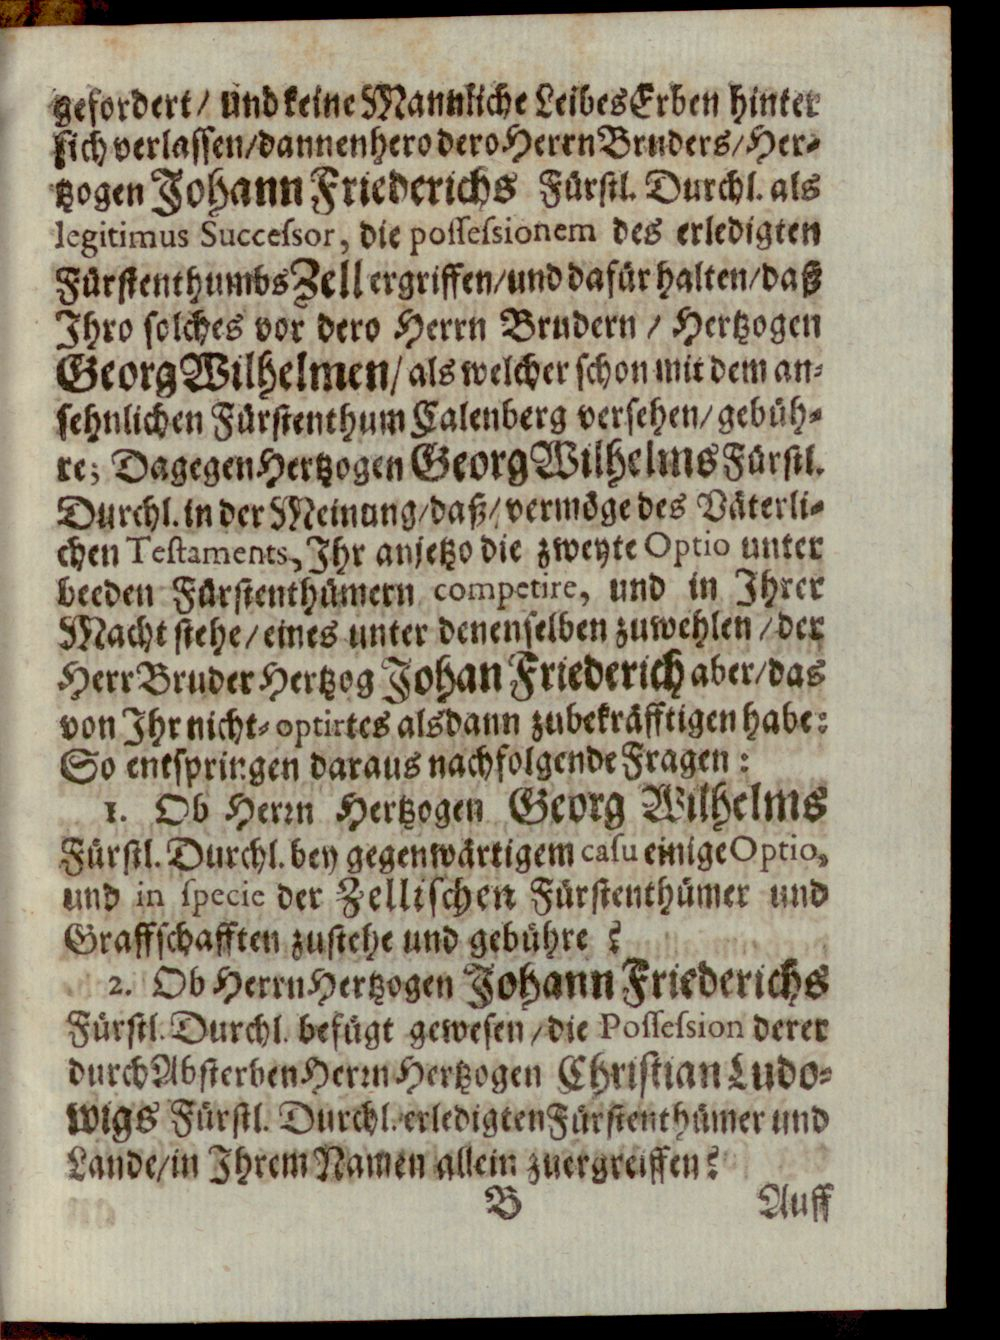 gefordert/ und keine Mannliche LeibesErben hinter
sich verlassen/dannenhero dero Herrn Bruders/Her-
tzogen Johann Friederichs Fürstl. Durchl. als
legitimus Successor, die possessionem des erledigten
Fürstenthumbs Zell ergriffen/und dafür halten/daß
Jhro solches vor dero Herrn Brudern / Hertzogen
Georg Wilhelmen/ als welcher schon mit dem an-
sehnlichen Fürstenthum Calenberg versehen/gebüh-
re; Dagegen Hertzogen Georg Wilhelms Fürstl.
Durchl. in der Meinung/daß/vermöge des Väterli-
chen Testaments, Jhr anjetzo die zweyte Optio unter
beeden Fürstenthümern competire, und in Jhrer
Macht stehe/eines unter denenselben zuwehlen/der
Herr Bruder Hertzog Johan Friederich aber/das
von Jhr nicht-optirtes alsdann zubekräfftigen habe:
So entspringen daraus nachfolgende Fragen:
1. Ob Herrn Hertzogen Georg Wilhelms
Fürstl. Durchl. bey gegenwärtigem casu einige Optio,
und in specie der Zellischen Fürstenthümer und
Graffschafften zustehe und gebühre?
2. Ob Herrn Hertzogen Johann Friederichs
Fürstl. Durchl. befügt gewesen/die Possession derer
durch Absterben Herrn Hertzogen Christian Ludo-
wigs Fürstl. Durchl. erledigten Fürstenthümer und
Lande/in Jhrem Namen allein zuergreiffen?
B Auff